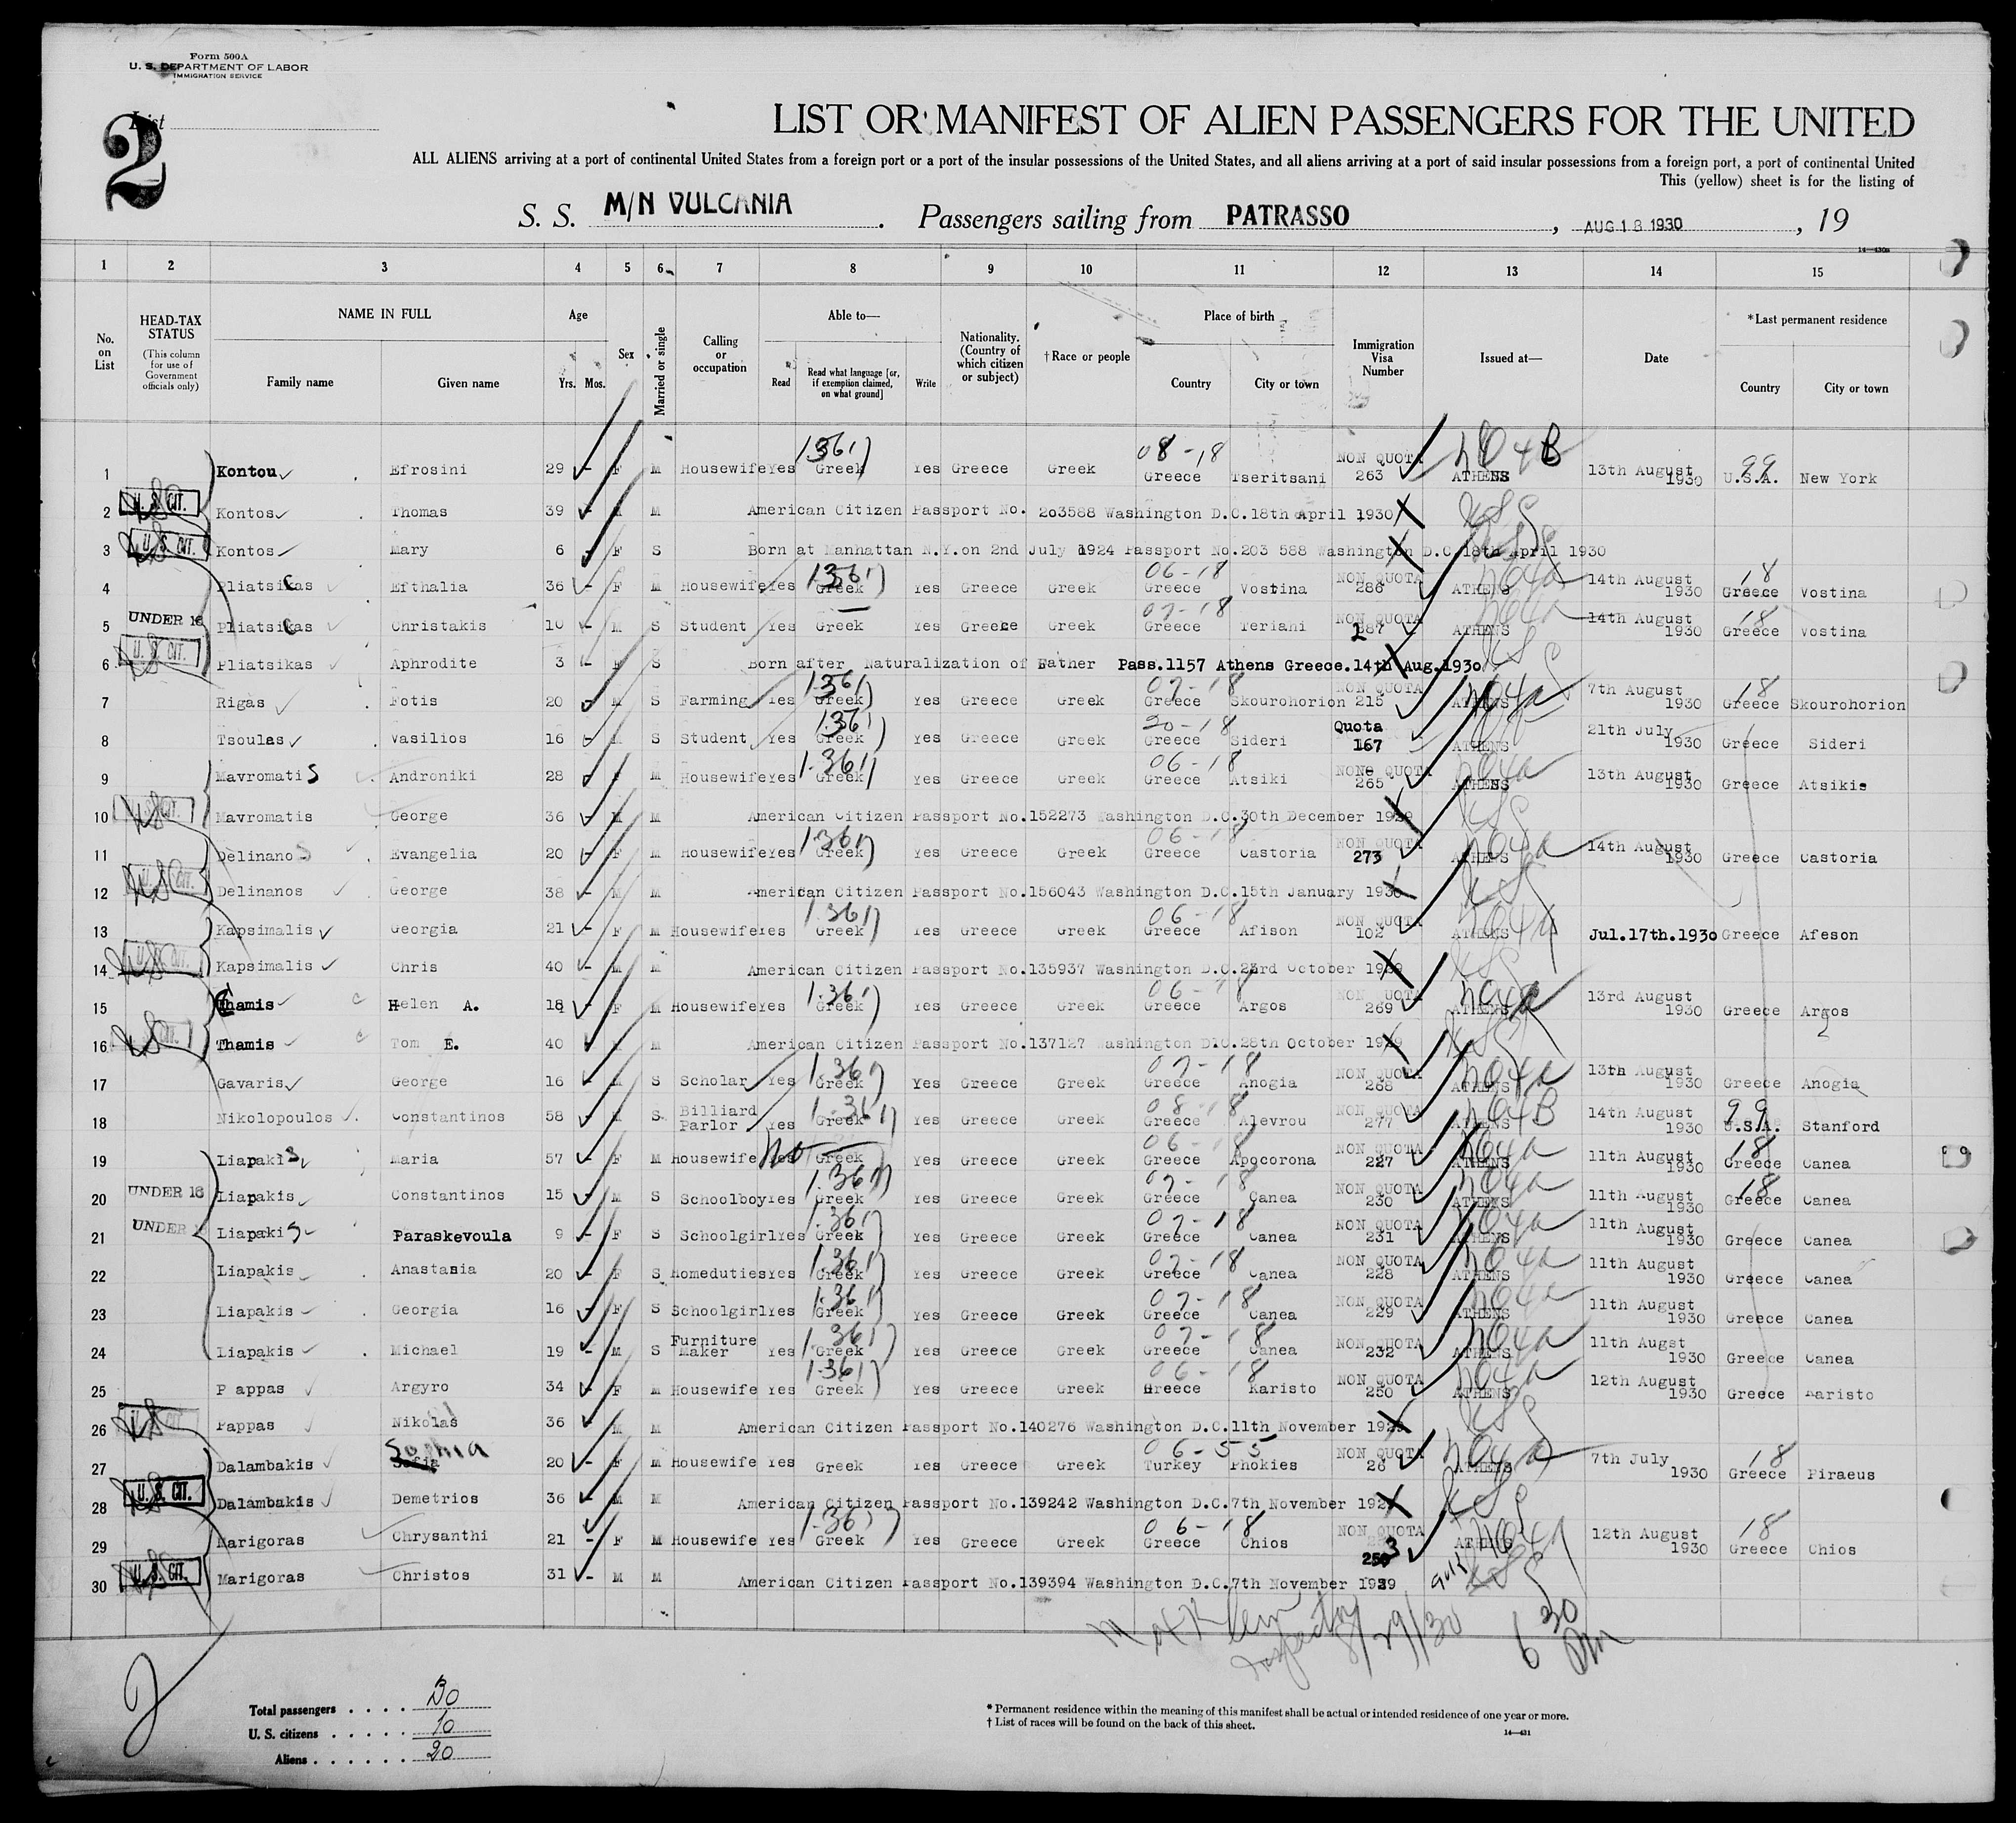 Form 500A
U. S. DEPARTMENT OF LABOR
IMMIGRATION SERVICE
List
2
LIST OR MANIFEST OF ALIEN PASSENGERS FOR THE UNITED
ALL ALIENS arriving at a port of continental United States from a foreign port or a port of the insular possessions of the United States, and all aliens arriving at a port of said insular possessions from a foreign port, a port of continental United
This (yellow) sheet is for the listing of
S. S. M/N VULCANIA. Passengers sailing from PATRASSO, AUG 18 1930, 19
14—430a
1 2 3 4 5 6 7 8 9 10 11 12 13 14 15
No. on List
HEAD-TAX STATUS
(This column for use of Government officials only)
NAME IN FULL
Family name Given name
Age
Yrs. Mos.
Sex
Married or single
Calling or occupation
Able to—
Read
Read what language [or, if exemption claimed, on what ground]
Write
Nationality. (Country of which citizen or subject)
† Race or people
Place of birth
Country City or town
Immigration Visa Number
Issued at—
Date
*Last permanent residence
Country City or town
1 Kontou Efrosini 29 - F M Housewife Yes Greek Yes Greece Greek 08-18 Greece Tseritsani NON QUOTA 263 ATHENS 13th August 1930 99 U.S.A. New York
2 U. S. CIT. Kontos Thomas 39 - M M American Citizen Passport No. 203588 Washington D.C.18th April 1930
3 U. S. CIT. Kontos Mary 6 - F S Born at Manhattan N.Y.on 2nd July 1924 Passport No.203 588 Washington D.C.18th April 1930
4 Pliatsikas Efthalia 36 - F M Housewife Yes Greek Yes Greece Greek 06-18 Greece Vostina NON QUOTA 286 ATHENS 14th August 1930 18 Greece Vostina
5 UNDER 16 Pliatsikas Christakis 10 - M S Student Yes Greek Yes Greece Greek 07-18 Greece Teriahi NON QUOTA 287 ATHENS 14th August 1930 18 Greece Vostina
6 U. S. CIT. Pliatsikas Aphrodite 3 - F S Born after Naturalization of Father Pass.1157 Athens Greece.14th Aug.1930
7 Rigas Fotis 20 - M S Farming Yes Greek Yes Greece Greek 07-18 Greece Skourohorion NON QUOTA 215 ATHENS 7th August 1930 18 Greece Skourohorion
8 Tsoulas Vasilios 16 - M S Student Yes Greek Yes Greece Greek 20-18 Greece Sideri Quota 167 ATHENS 21th July 1930 Greece Sideri
9 Mavromatis Androniki 28 - F M Housewife Yes Greek Yes Greece Greek 06-18 Greece Atsiki NON QUOTA 265 ATHENS 13th August 1930 Greece Atsikis
10 U. S. CIT. Mavromatis George 36 - M M American Citizen Passport No.152273 Washington D.C.30th December 1929
11 Delinanos Evangelia 20 - F M Housewife Yes Greek Yes Greece Greek 06-18 Greece Castoria NON QUOTA 273 ATHENS 14th August 1930 Greece Castoria
12 U. S. CIT. Delinanos George 38 - M M American Citizen Passport No.156043 Washington D.C.15th January 1930
13 Kapsimalis Georgia 21 - F M Housewife Yes Greek Yes Greece Greek 06-18 Greece Afison NON QUOTA 102 ATHENS Jul.17th.1930 Greece Afeson
14 U. S. CIT. Kapsimalis Chris 40 - M M American Citizen Passport No.135937 Washington D.C.23rd October 1929
15 Thamis Helen A. 18 - F M Housewife Yes Greek Yes Greece Greek 06-18 Greece Argos NON QUOTA 269 ATHENS 13rd August 1930 Greece Argos
16 U. S. CIT. Thamis Tom E. 40 - M M American Citizen Passport No.137127 Washington D.C.28th October 1929
17 Gavaris George 16 - M S Scholar Yes Greek Yes Greece Greek 07-18 Greece Anogia NON QUOTA 268 ATHENS 13th August 1930 Greece Anogia
18 Nikolopoulos Constantinos 58 - M S Billiard Parlor Yes Greek Yes Greece Greek 08-18 Greece Alevrou NON QUOTA 277 ATHENS 14th August 1930 99 U.S.A. Stanford
19 Liapakis Maria 57 - F M Housewife No Yes Greek Yes Greece Greek 06-18 Greece Apocorona NON QUOTA 227 ATHENS 11th August 1930 18 Greece Canea
20 UNDER 16 Liapakis Constantinos 15 - M S Schoolboy Yes Greek Yes Greece Greek 07-18 Greece Canea NON QUOTA 230 ATHENS 11th August 1930 18 Greece Canea
21 UNDER Liapakis Paraskevoula 9 - F S Schoolgirl Yes Greek Yes Greece Greek 07-18 Greece Canea NON QUOTA 231 ATHENS 11th August 1930 Greece Canea
22 Liapakis Anastasia 20 - F S Homeduties Yes Greek Yes Greece Greek 07-18 Greece Canea NON QUOTA 228 ATHENS 11th August 1930 Greece Canea
23 Liapakis Georgia 16 - F S Schoolgirl Yes Greek Yes Greece Greek 07-18 Greece Canea NON QUOTA 229 ATHENS 11th August 1930 Greece Canea
24 Liapakis Michael 19 - M S Furniture Maker Yes Greek Yes Greece Greek 07-18 Greece Canea NON QUOTA 232 ATHENS 11th Augst 1930 Greece Canea
25 P appas Argyro 34 - F M Housewife Yes Greek Yes Greece Greek 06-18 Greece Karisto NON QUOTA 250 ATHENS 12th August 1930 Greece Karisto
26 U. S. CIT. Pappas Nikolas 36 - M M American Citizen Passport No.140276 Washington D.C.11th November 1929
27 Dalambakis Sophia Sofia 20 - F M Housewife Yes Greek Yes Greece Greek 06-55 Turkey Phokies NON QUOTA 26 ATHENS 7th July 1930 18 Greece Piraeus
28 U. S. CIT. Dalambakis Demetrios 36 - M M American Citizen Passport No.139242 Washington D.C.7th November 1929
29 Marigoras Chrysanthi 21 - F M Housewife Yes Greek Yes Greece Greek 06-18 Greece Chios NON QUOTA 253 ATHENS 12th August 1930 18 Greece Chios
30 U. S. CIT. Marigoras Christos 31 - M M American Citizen Passport No.139394 Washington D.C.7th November 1929
Klein
Inspector
8/29/30
6 30 PM
2
Total passengers 30
U. S. citizens 10
Aliens 20
* Permanent residence within the meaning of this manifest shall be actual or intended residence of one year or more.
† List of races will be found on the back of this sheet.
14—431